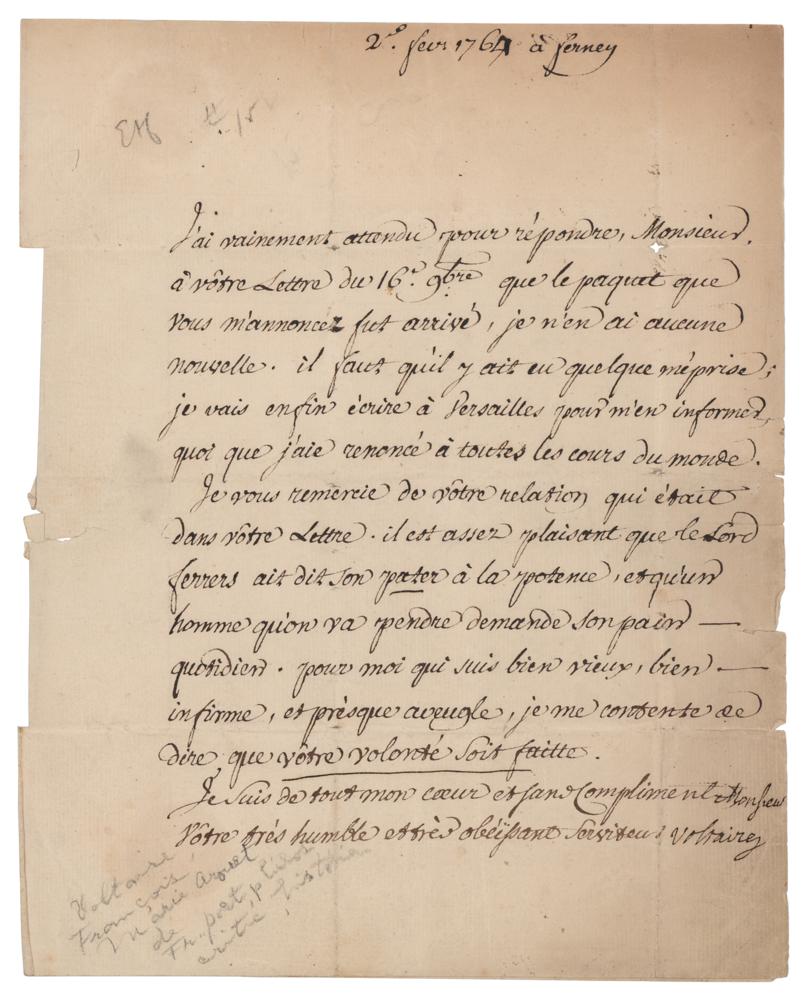 2.e fevr 1764 à ferney
J'ai vainement attendu pour répondre, Monsieur,
à vôtre Lettre du 16.e 9bre que le paquet que
vous m'annoncez fut arrivé, je n'en ai aucune
nouvelle. il faut qu'il y ait eu quelque méprise;
je vais enfin écrire à Versailles pour m'en informer,
quoi que j'aie renoncé à toutes les cours du monde.
Je vous remercie de vôtre relation qui était
dans vôtre Lettre. il est assez plaisant que le Lord
ferrers ait dit son pater à la potence, et qu'un
homme qu'on va pendre demande son pain —
quotidien. pour moi qui suis bien vieux, bien —
infirme, et présque aveugle, je me contente de
dire, que vôtre volonté soit faitte.
Je suis de tout mon cœur et sans Compliment Monsieur
Vôtre trés humble et très obéissant serviteur Voltaire
Voltaire
François
Marie Arouet
de
Fr. poet, philos
critic, historian